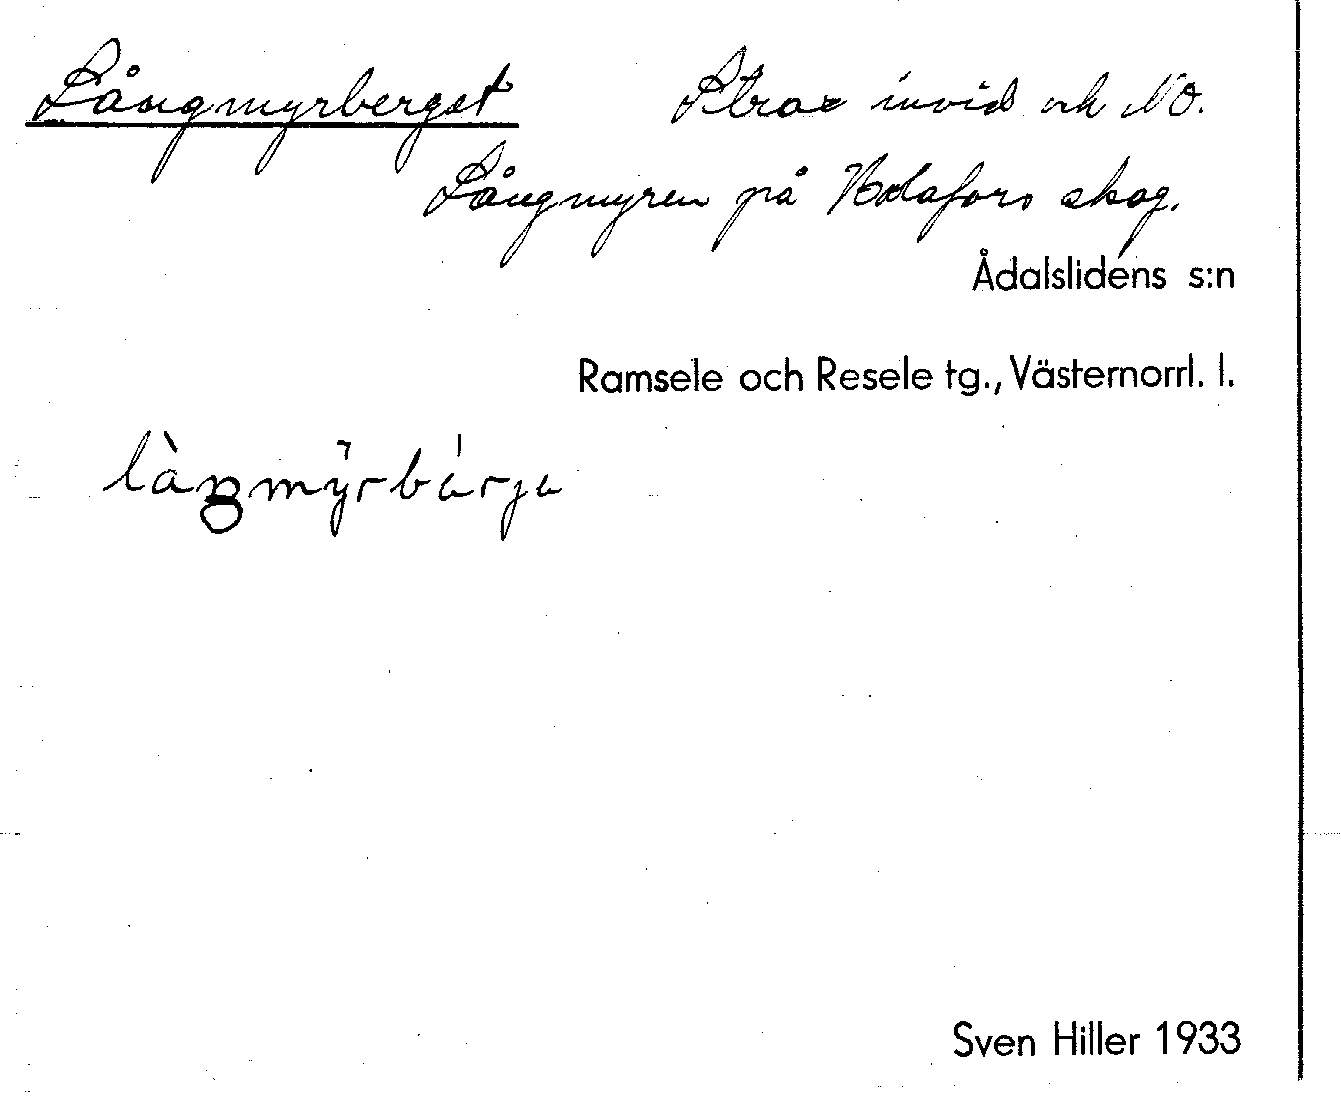 Långmyrberget Strax invid och NO.
Långmyren på Edsfors skog.
Ådalslidens s:n
Ramsele och Resele tg., Västernorrl. l.
Sven Hiller 1933